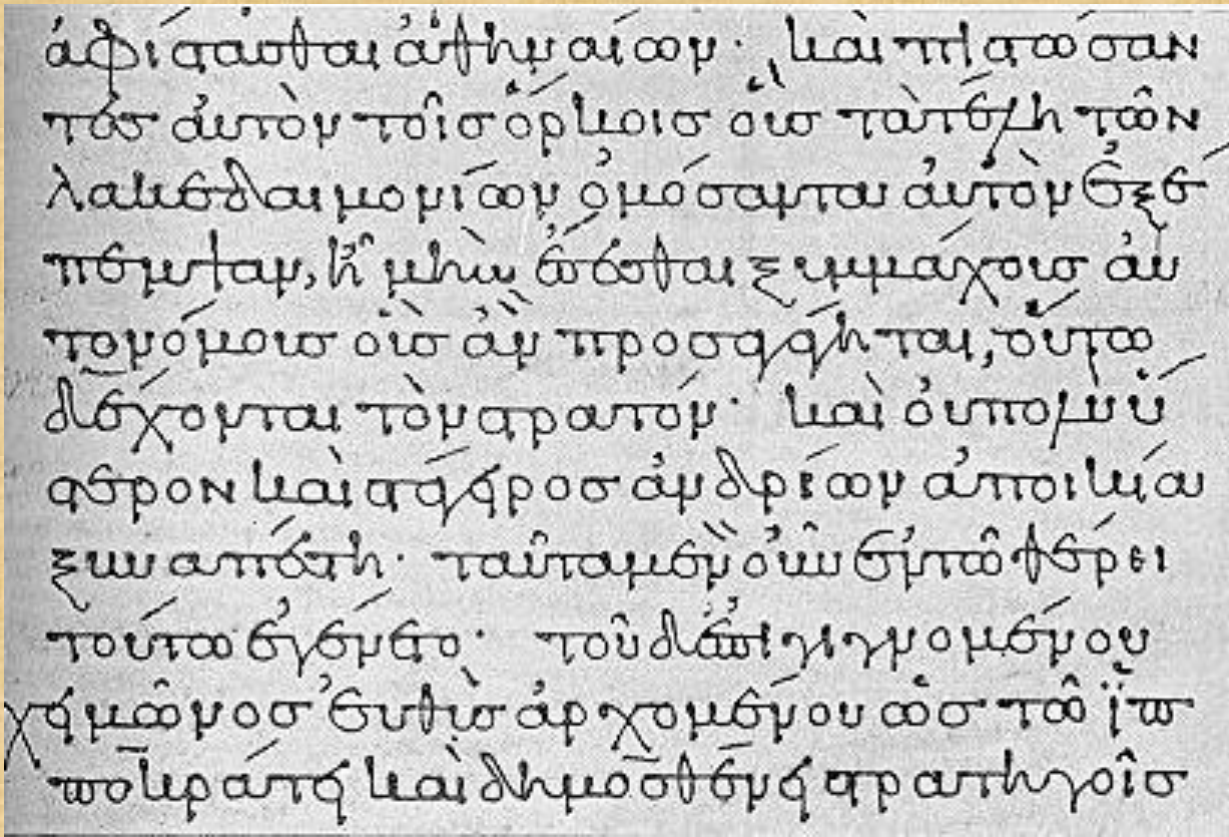 ἀφίστασθαι ἀθηναίων· καὶ πιστώσαν
τεσ ἀυτὸν τοῖσ ὅρκοισ οὓσ τὰ τέλη τῶν
λακεδαιμονίων ὀμόσαντα ἀυτὸν ἐξέ
πεμψαν, ἦ μὴν ἔσεσθαι ξυμμάχουσ ἀυ
τονόμουσ οὓσ ἂν προσαγάγηται, ὅυτω
δέχονται τὸν στρατόν· καὶ ὀυπολὺ ὕ
στερον καὶ στάγειροσ ἀνδρίων ἀποικία
ξυναπέστη· ταῦτα μὲν οὖν ἐν τῶ θέρει
τούτω ἐγένετο· τοῦ δ' ἐπιγιγνομένου
χειμῶνοσ ἐυθὺσ ἀρχομένου ὡσ τῶ ἱπ
ποκράτει καὶ δημοσθένει στρατηγοῖσ